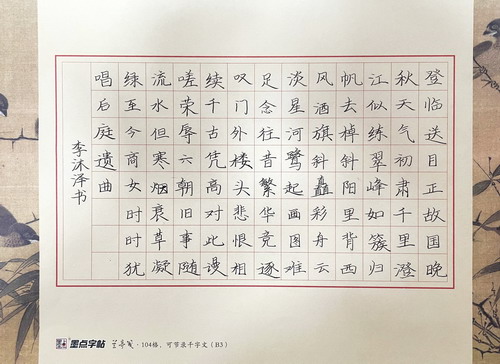 登临送目正故国晚
秋天气初肃千里澄
江似练翠峰如簇归
帆去棹斜阳里背西
风酒旗斜矗彩舟云
淡星河鹭起画图难
足念往昔繁华竞逐
叹门外楼头悲恨相
续千古凭高对此谩
嗟荣辱六朝旧事随
流水但寒烟衰草凝
绿至今商女时时犹
唱后庭遗曲
李沐泽书
墨点字帖 兰亭笺·104格，可节录千字文（B3）